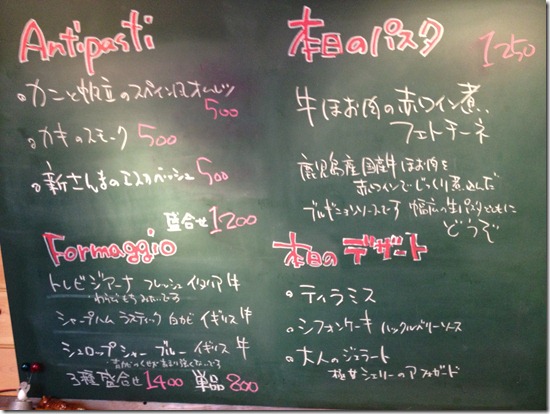 Antipasti
・カニと帆立のスペイン風オムレツ
500
・カキのスモーク 500
・新さんまのエスカベッシュ 500
盛合せ 1200
Formaggio
トレビジアーナ フレッシュ イタリア 牛
シャープハム ラスティック 白カビ イギリス 牛
シュロップシャー ブルー イギリス 牛
3種盛合せ 1400 単品 800
本日のパスタ 1250
牛ほお肉の赤ワイン煮
フェトチーネ
鹿児島産国産牛ほお肉を
赤ワインでじっくり煮込んだ
ブルギニョンソースです 幅広の生パスタとともに
どうぞ
本日の デザート
・ティラミス
・シフォンケーキ ハックルベリーソース
・大人のジェラート
極甘シェリーのアフォガード